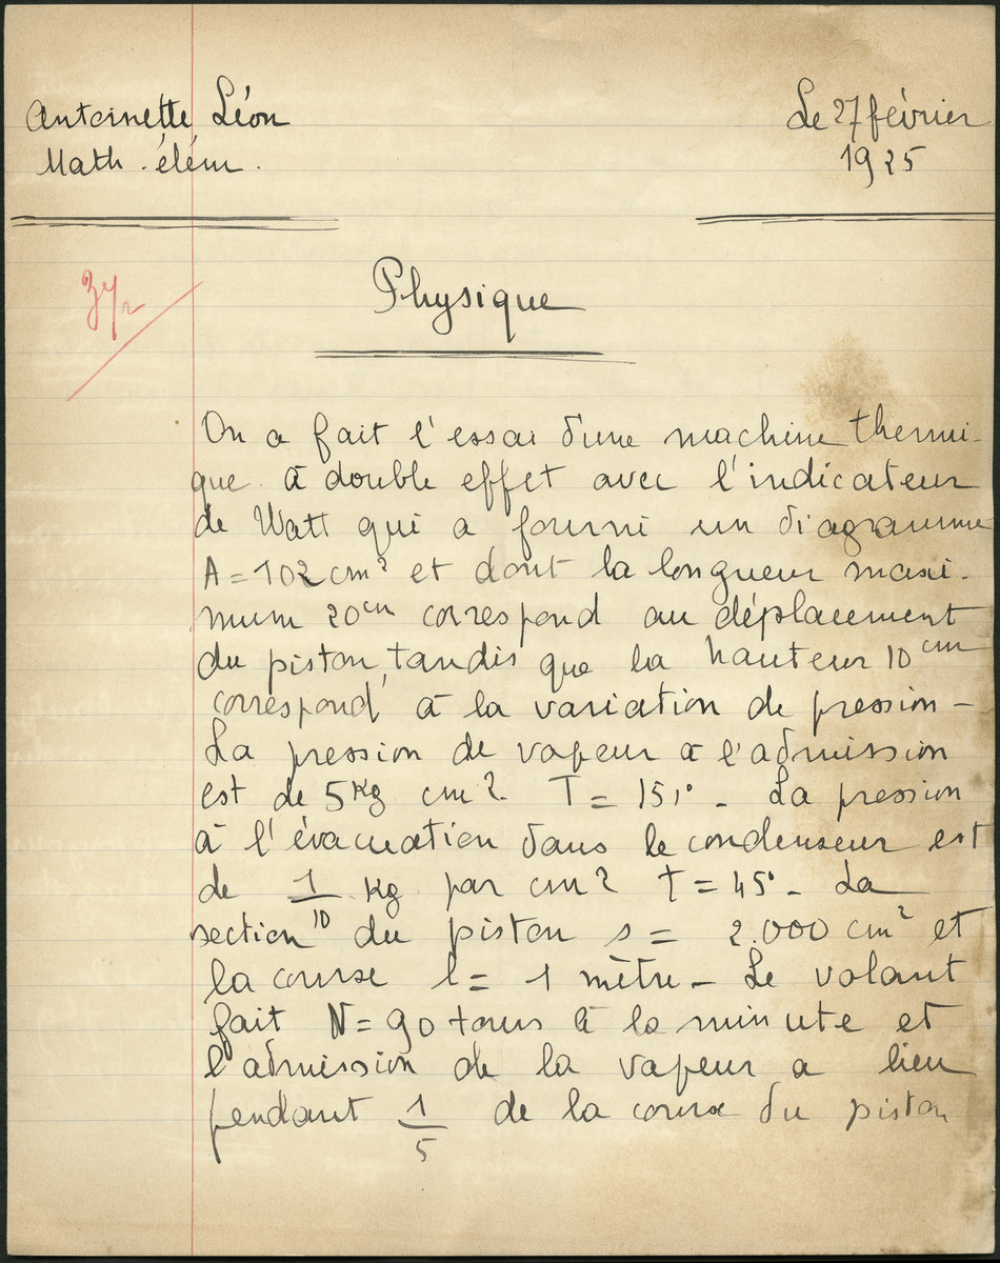 Antoinette Léon
Le 27 février
Math. élém.
1925
Physique
On a fait l'essai d'une machine thermi-
que à double effet avec l'indicateur
de Watt qui a fourni un diagramme
A = 102 cm² et dont la longueur maxi-
mum 20cm correspond au déplacement
du piston, tandis que la hauteur 10 cm
correspond à la variation de pression -
La pression de vapeur à l'admission
est de 5 Kg cm². T = 151° - La pression
à l'évacuation dans le condenseur est
de 1/10 Kg par cm² t = 45° - La
section du piston s = 2.000 cm² et
la course l = 1 mètre - Le volant
fait N = 90 tours à la minute et
l'admission de la vapeur a lieu
pendant 1/5 de la course du piston